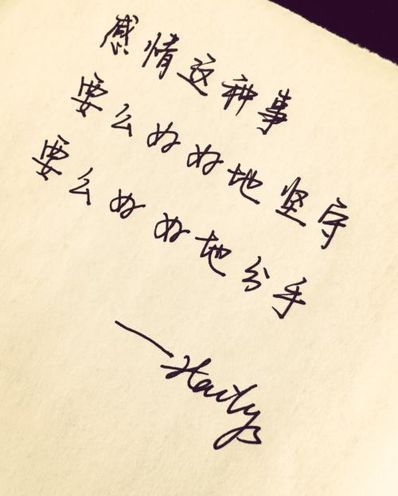 感情这种事
要么好好地坚守
要么好好地分手
—Haily